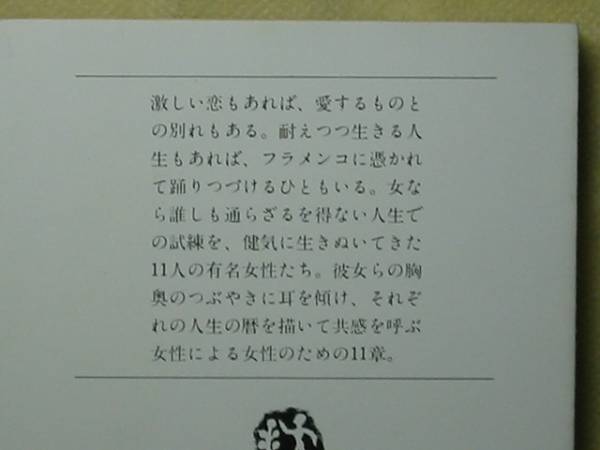 激しい恋もあれば、愛するものと
の別れもある。耐えつつ生きる人
生もあれば、フラメンコに憑かれ
て踊りつづけるひともいる。女な
ら誰しも通らざるを得ない人生で
の試練を、健気に生きぬいてきた
11人の有名女性たち。彼女らの胸
奥のつぶやきに耳を傾け、それぞ
れの人生の暦を描いて共感を呼ぶ
女性による女性のための11章。